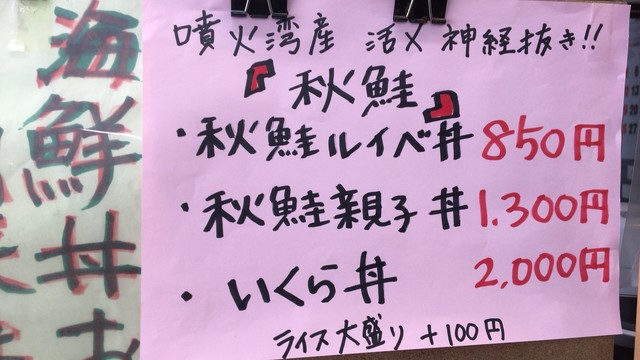 噴火湾産 活〆 神経抜き!!
秋鮭
・秋鮭ルイベ丼 850円
・秋鮭親子丼 1.300円
・いくら丼 2,000円
ライス大盛り +100円
海鮮丼お